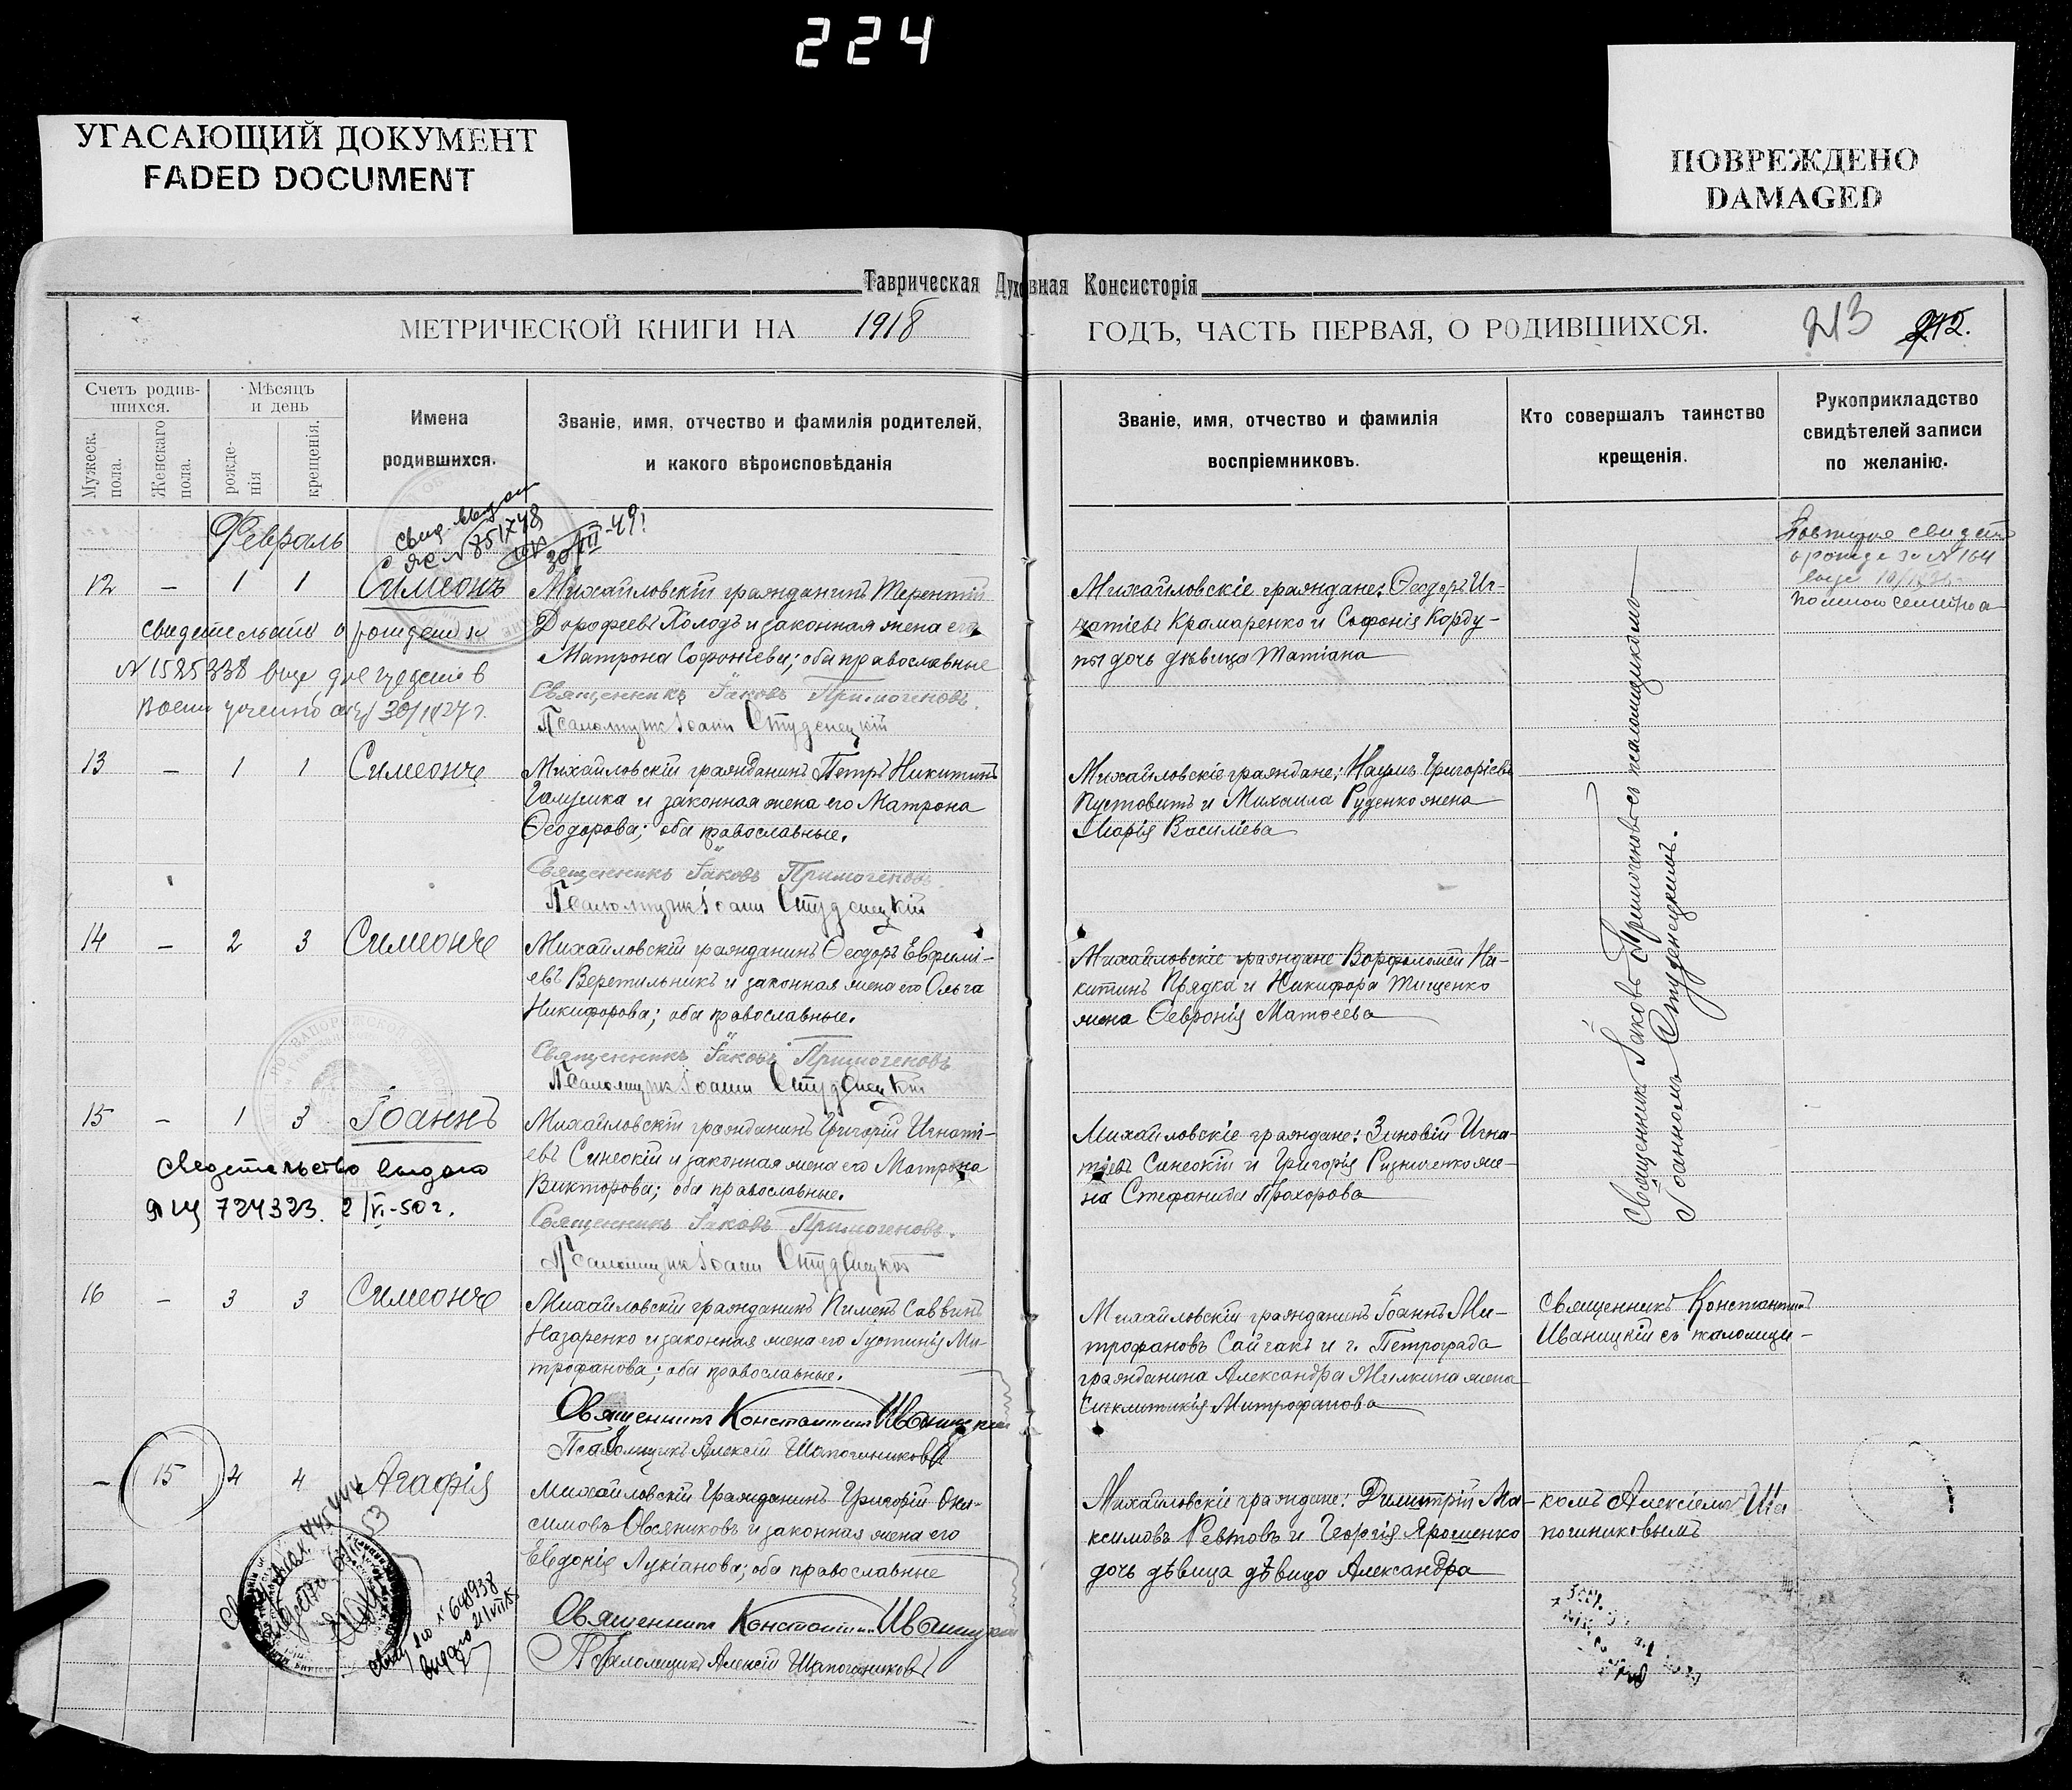 224
УГАСАЮЩИЙ ДОКУМЕНТ
FADED DOCUMENT
ПОВРЕЖДЕНО
DAMAGED
Таврическая Духовная Консисторія
МЕТРИЧЕСКОЙ КНИГИ НА 1918
ГОДЪ, ЧАСТЬ ПЕРВАЯ, О РОДИВШИХСЯ.
213
Счетъ родив-
шихся.
Мужеск.
пола.
Женскаго
пола.
Мѣсяцъ
и день
рожде-
нія
крещенія.
Имена
родившихся.
Званіе, имя, отчество и фамилія родителей,
и какого вѣроисповѣданія
Званіе, имя, отчество и фамилія
воспріемниковъ.
Кто совершалъ таинство
крещенія.
Рукоприкладство
свидѣтелей записи
по желанію.
Февраль
№ 851748
30/III-49г
12 — 1 1 Симеонъ
Михайловскій гражданинъ Терентій
Дорофеевъ Холодъ и законная жена его
Матрона Софоніева; оба православные
Священникъ Іаковъ Примогеновъ.
Псаломщик Іоанн Студенецкій
Михайловскіе граждане: Ѳеодоръ Иг-
натіевъ Крамаренко и Софонія Корду-
пы дочь дѣвица Татіана
свидетельство о рождении
N 1525338
30/IV 27 г.
13 — 1 1 Симеонъ
Михайловскій гражданинъ Петръ Никитинъ
Галушка и законная жена его Матрона
Ѳеодорова; оба православные.
Священникъ Іаковъ Примогеновъ.
Псаломщик Іоанн Студенецкій
Михайловскіе граждане: Наумъ Григоріевъ
Пустовитъ и Михаила Руденко жена
Марія Василіева
14 — 2 3 Симеонъ
Михайловскій гражданинъ Ѳеодоръ Евфимі-
евъ Веретильникъ и законная жена его Ольга
Никифорова; оба православные.
Священникъ Іаковъ Примогеновъ
Псаломщик Іоанн Студенецкій
Михайловскіе граждане Варфоломей Ни-
китинъ Прядка и Никифора Тищенко
жена Ѳевронія Матѳеева
15 — 1 3 Іоаннъ
Михайловскій гражданинъ Григорій Игнаті-
евъ Синеокій и законная жена его Матрона
Викторова; оба православные.
Священникъ Іаковъ Примогеновъ.
Псаломщик Іоанн Студенецкій
Михайловскіе граждане: Зиновій Игна-
тіевъ Синеокій и Григорія Резниченко же-
на Стефанида Прохорова
Свидетельство выдано
724323. 2/VI-50г.
Священникъ Іаковъ Примогеновъ съ псаломщикомъ
Іоанномъ Студенецкимъ.
16 — 3 3 Симеонъ
Михайловскій гражданинъ Пименъ Саввинъ
Назаренко и законная жена его Іустинія Ми-
трофанова; оба православные.
Священникъ Константинъ Иваницкій
Псаломщикъ Алексій Шапошниковъ
Михайловскій гражданинъ Іоаннъ Ми-
трофановъ Сайгакъ и г. Петрограда
гражданина Александра Жилкина жена
Синклитикія Митрофанова
Священникъ Константинъ
Иваницкій съ псаломщи-
— 15 2 4 Агафія
Михайловскій Гражданинъ Григорій Они-
симовъ Овсяниковъ и законная жена его
Евдокія Лукіанова; оба православные
Священникъ Константинъ Иваницкій
Псаломщикъ Алексій Шапошниковъ
Михайловскіе граждане: Димитрій Ма-
ксимовъ Ревтовъ и Георгія Ярошенко
дочь дѣвица дѣвица Александра
комъ Алексіемъ Ша
пошниковымъ
№ 648938